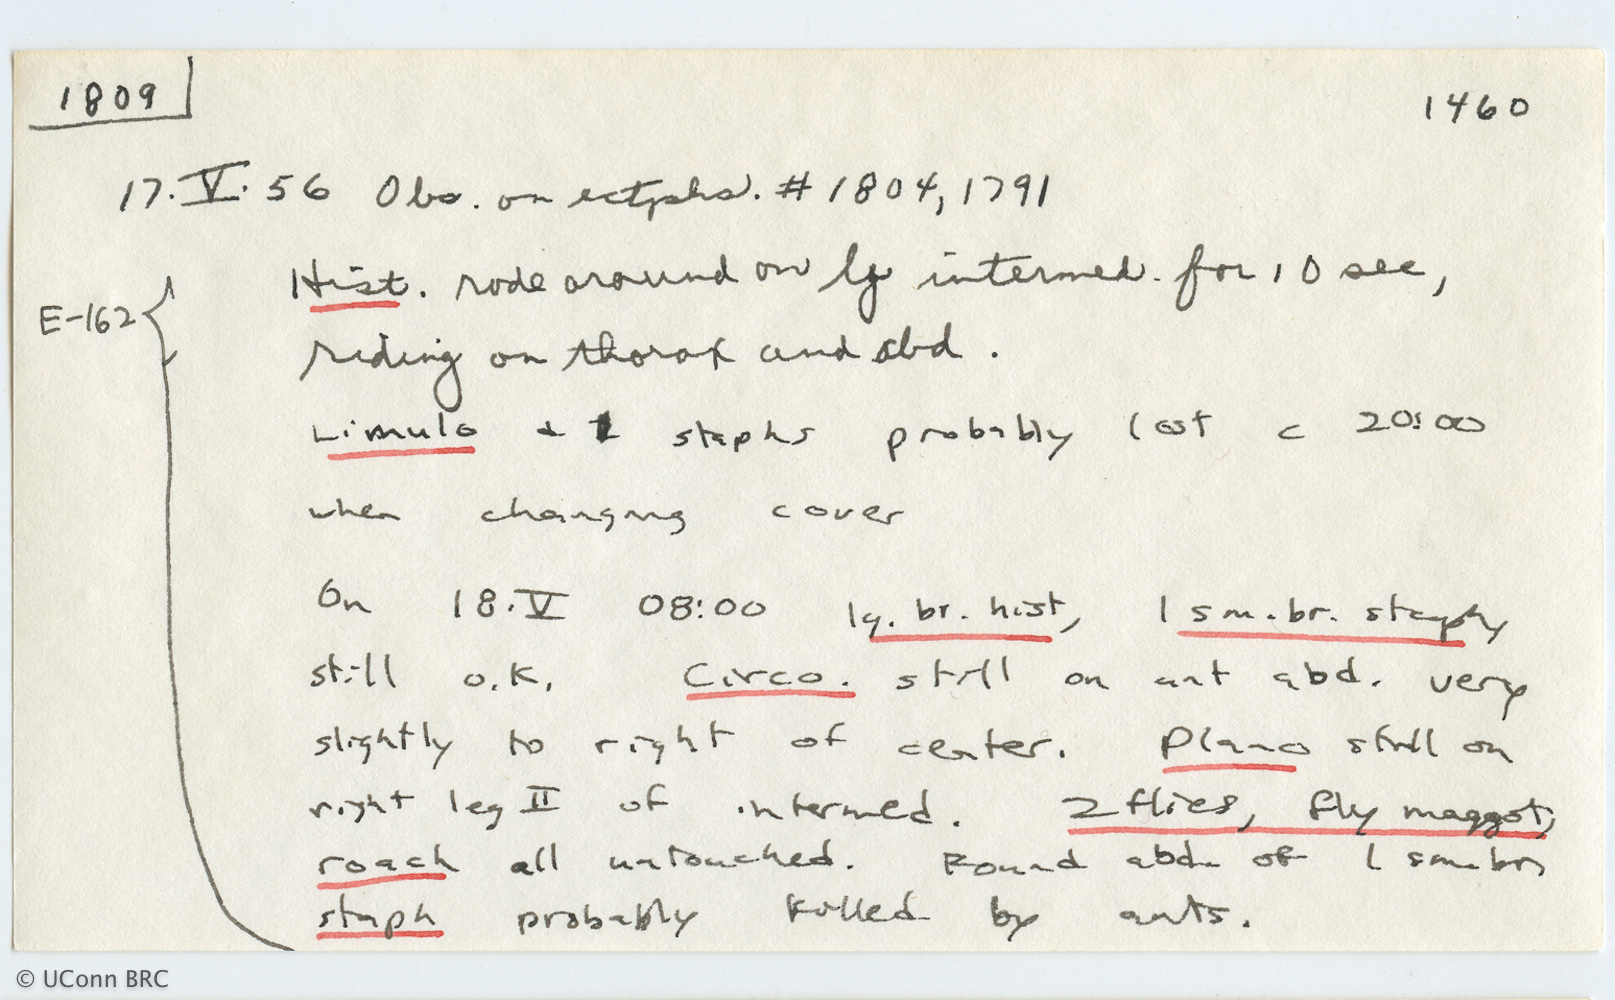 1809
1460
17.V.56 Obs. on ectphs. # 1804, 1791
E-162
Hist. rode around on lg intermed. for 10 sec,
riding on thorax and abd.
Limulo & 1 staphs probably lost c 20:00
when changing cover
On 18.V 08:00 lg. br. hist, 1 sm. br. staphy
still o.k. Circo. still on ant abd. very
slightly to right of center. Plano still on
right leg II of intermed. 2 flies, fly maggot,
roach all untouched. Found abd. of 1 sm. brn
staph probably killed by ants.
© UConn BRC